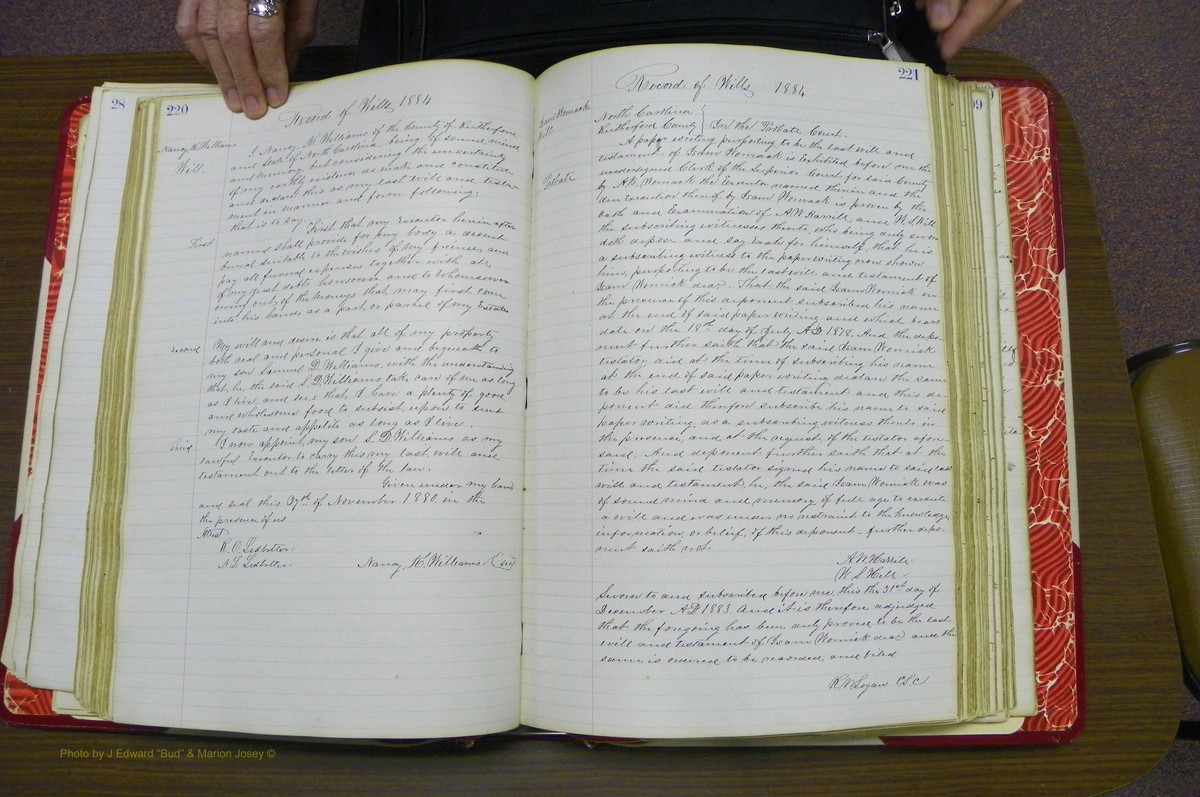 28
220
Record of Wills 1884
Nancy K. Williams
Will.
I Nancy K. Williams of the County of Rutherford
and State of North Carolina being of sound mind
and memory but considering the uncertainty
of my earthly existence do make and constitute
and declare this as my last will and testa
ment in manner and form following;
that is to say,
First
First that my Executor herein after
named shall provide for my body a decent
burial suitable to the wishes of my friends and
pay all funeral expenses together with all
of my just debts howsoever and to whomsoever
owing out of the moneys that may first come
into his hands as a part or parcel of my Estate.
Second
My will and desire is that all of my property
both real and personal I give and bequeath to
my son Samuel D. Williams, with the understanding
that he the said S. D. Williams take care of me as long
as I live, and see that I have a plenty of good
and wholesome food to subsist upon to suit
my taste and appetite as long as I live.
Third
I now appoint my son S. D. Williams as my
lawful Executor to carry this my last will and
testament out to the letter of the law.
Given under my hand
and seal this 27th of November 1880 in the
the presence of us
Attest
R. O. Ledbetter
N. L. Ledbetter
Nancy K. Williams (seal)
221
99
Record of Wills 1884
Isam Womack
Will
Probate
North Carolina
Rutherford County } In the Probate Court.
A paper writing purporting to be the last will and
testament of Isam Womack is exhibited before me the
undersigned Clerk of the Superior Court for said County
by A. K. Womack the Executor named therein and the
due Execution thereof by Isam Womack is proven by the
oath and Examination of A. W. Harrill and W. S. Hill
the subscribing witnesses thereto, who being duly sworn
doth depose and say Each for himself that he is
a subscribing witness to the paper writing now shown
him, purporting to be the last will and testament of
Isam Womick decd. That the said Isam Womick in
the presence of this deponent subscribed his name
at the end of said paper writing and which bears
date on the 18th day of July AD 1878. And the depo-
nent further saith that the said Isam Womick
testator did at the time of subscribing his name
at the end of said paper writing declare the same
to be his last will and testament and this de-
ponent did therefore subscribe his name to said
paper writing, as a subscribing witness thereto in
the presence, and at the request, of the testator afore
said. And deponent further saith that at the
time the said testator signed his name to said last
will and testament, he, the said Isam Womick was
of sound mind and memory of full age to execute
a will and was under no restraint to the knowledge
information, or belief, of this deponent - further depo-
nent saith not.
A. W. Harrill
W. S. Hill
Sworn to and subscribed before me, this the 31st day of
December AD 1883. And it is therefore adjudged
that the foregoing has been duly proved to be the last
will and testament of Isam Womick decd and the
same is ordered to be recorded and filed
R. W. Logan C.S.C
Photo by J Edward "Bud" & Marion Josey ©